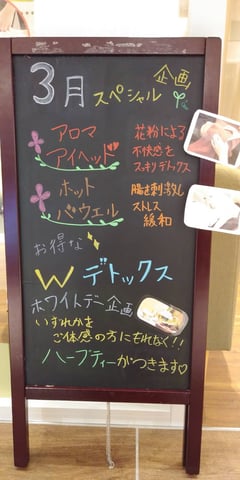 3月スペシャル企画
アロマ
アイヘッド
花粉による
不快感を
スッキリデトックス
ホット
バウエル
腸を刺激し
ストレス
緩和
お得な
Wデトックス
ホワイトデー企画
いずれかを
ご体感の方にもれなく!!
ハーブティーがつきます♡